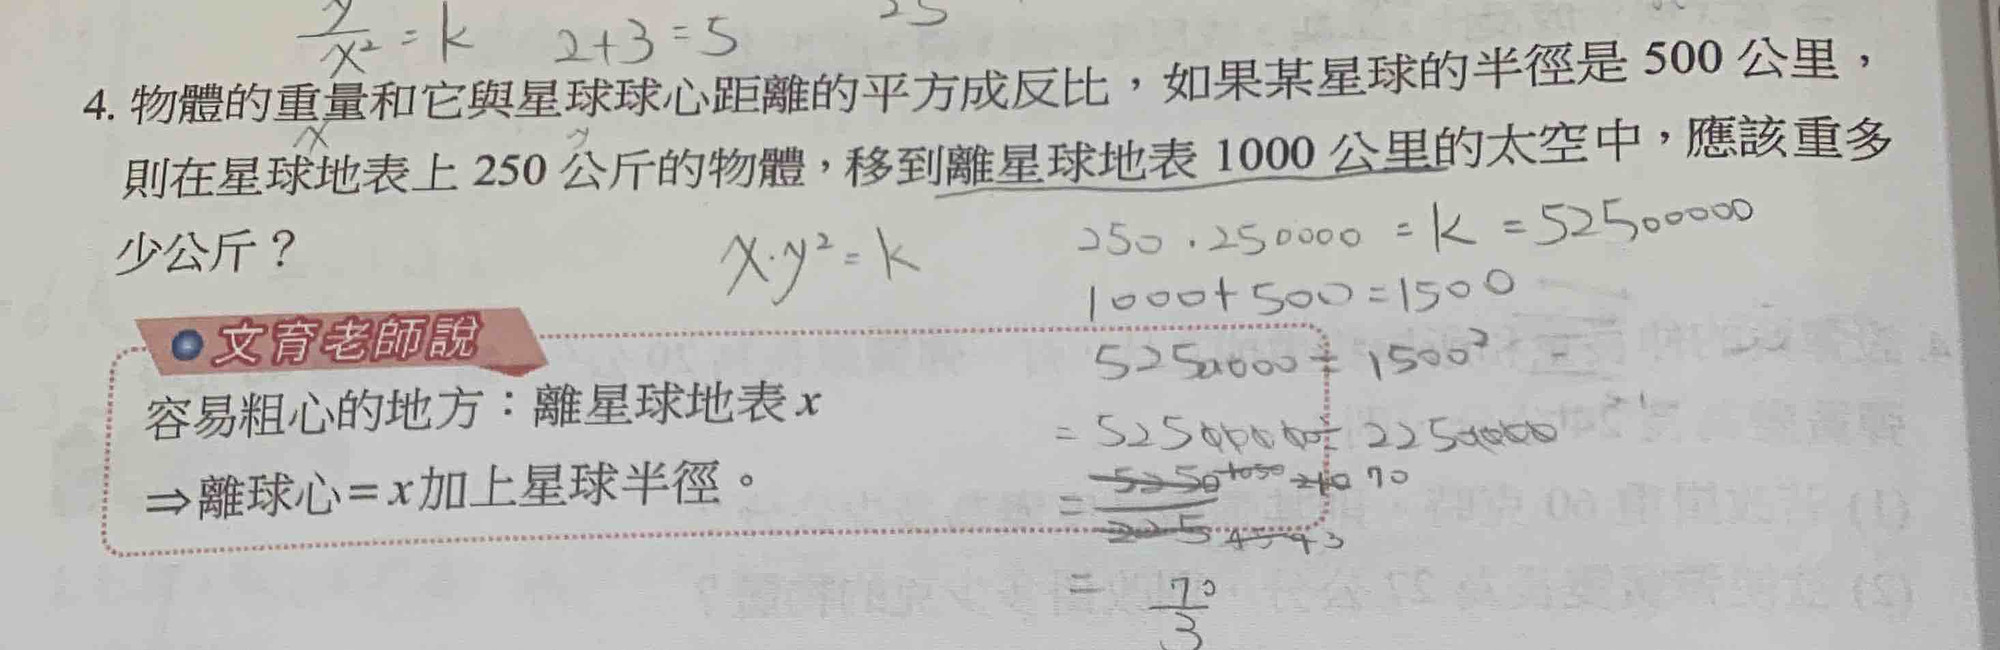 y/x² = k 2+3=5 25
4. 物體的重量和它與星球球心距離的平方成反比，如果某星球的半徑是 500 公里，
x y
則在星球地表上 250 公斤的物體，移到離星球地表 1000 公里的太空中，應該重多
少公斤？
x·y²=k
250·250000=k=52500000
1000+500=1500
文育老師說
容易粗心的地方：離星球地表 x
⇒離球心=x加上星球半徑。
52500000÷1500²=
=52500000÷2250000
=5250 1050 210 70
225 45 9 3
=70/3